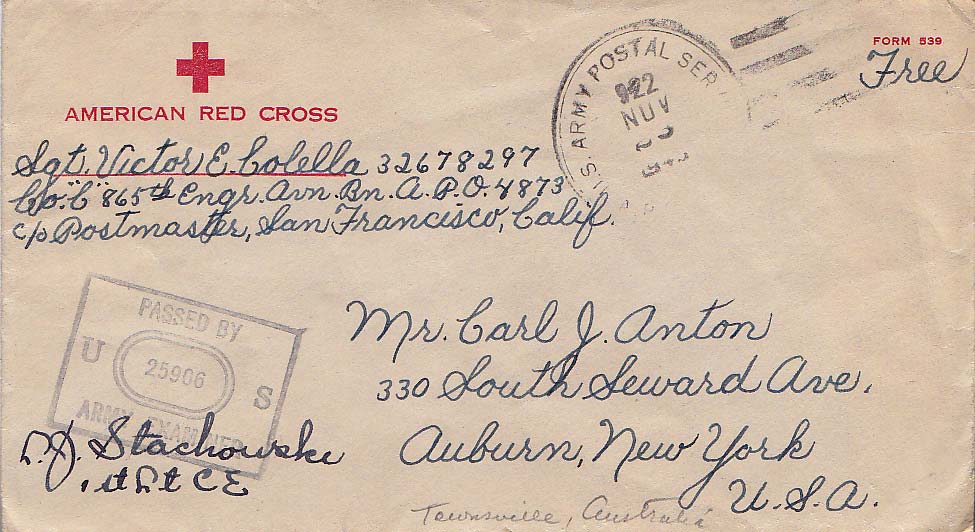 FORM 539
Free
AMERICAN RED CROSS
Sgt. Victor E. Colella 32678297
Co. "C" 865th Engr. Avn. Bn. A.P.O. 4873
c/o Postmaster, San Francisco, Calif.
U.S. ARMY POSTAL SER
922
NOV
PASSED BY
U 25906 S
ARMY EXAMINER
Stachowski
1st Lt CE
Mr. Carl J. Anton
330 South Seward Ave.
Auburn, New York
U.S.A.
Townsville, Australia